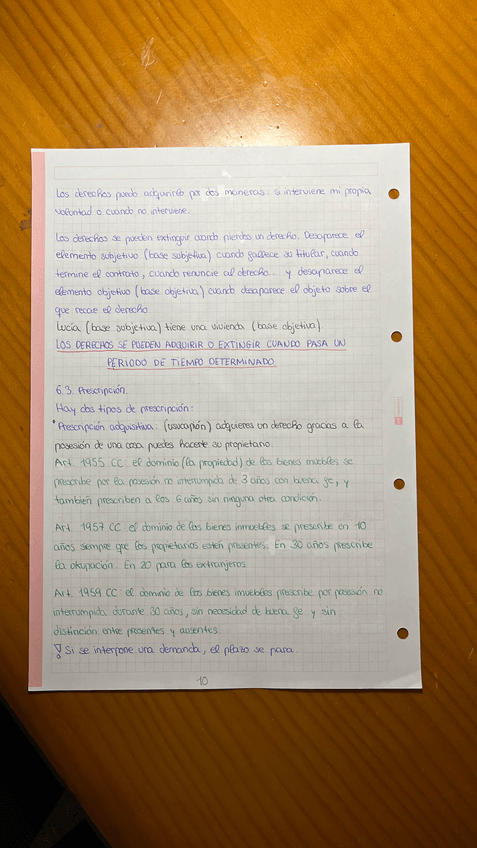 Los derechos puedo adquirirlo por dos maneras: si interviene mi propia
voluntad o cuando no interviene.
Los derechos se pueden extinguir cuando pierdes un derecho. Desaparece el
elemento subjetivo (base subjetiva) cuando fallece su titular, cuando
termine el contrato, cuando renuncie al derecho... y desaparece el
elemento objetivo (base objetiva) cuando desaparece el objeto sobre el
que recae el derecho
Lucía (base subjetiva) tiene una vivienda (base objetiva).
LOS DERECHOS SE PUEDEN ADQUIRIR O EXTINGIR CUANDO PASA UN
PERIODO DE TIEMPO DETERMINADO
6.3. Prescripción.
Hay dos tipos de prescripción:
• Prescripción adquisitiva: (usucapión) adquieres un derecho gracias a la
posesión de una cosa puedes hacerte su propietario.
Art. 1955 CC: el dominio (la propiedad) de los bienes muebles se
prescribe por la posesión no interrumpida de 3 años con buena fe, y
también prescriben a los 6 años sin ninguna otra condición.
Art. 1957 CC: el dominio de los bienes inmuebles se prescribe en 10
años siempre que los propietarios estén presentes. En 30 años prescribe
la okupación. En 20 para los extranjeros
Art. 1959 CC: el dominio de los bienes imuebles prescribe por posesión no
interrumpida durante 30 años, sin necesidad de buena fe y sin
distinción entre presentes y ausentes.
! Si se interpone una demanda, el plazo se para.
10